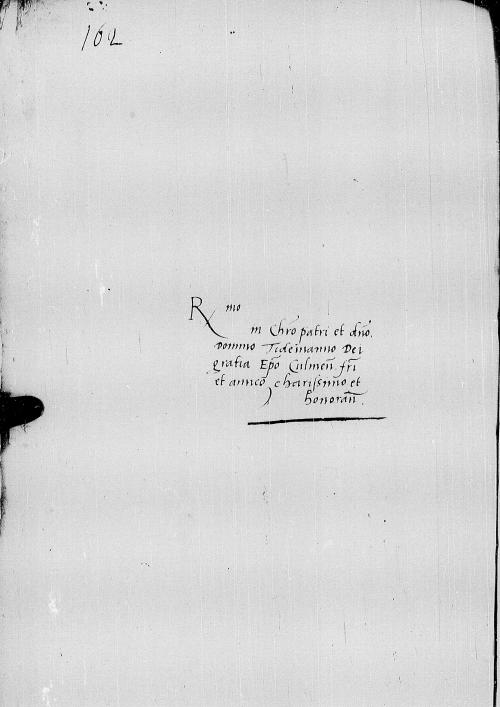 162
Rmo
in Chro patri et dno.
Domino Tidemanno Dei
gratia Epo Culmen fri
et amico charissimo et
honoran.